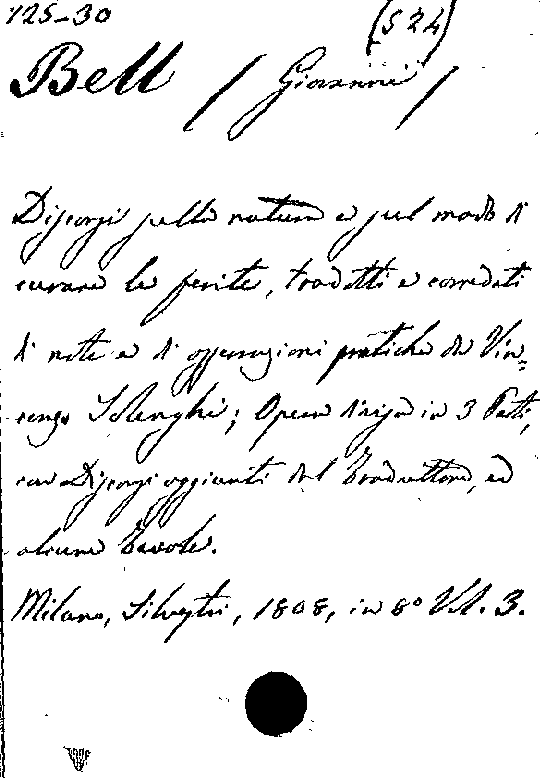 125-30 (524)
Bell / Giovanni /
Discorsi sulla natura e sul modo di
curare le ferite, tradotti e corredati
di note e di osservazioni pratiche da Vin=
cenzo Solenghi; Opera divisa in 3 Parti,
con Discorsi aggiunti del Traduttore, ed
alcune Tavole.
Milano, Silvestri, 1808, in 8° Vol. 3.